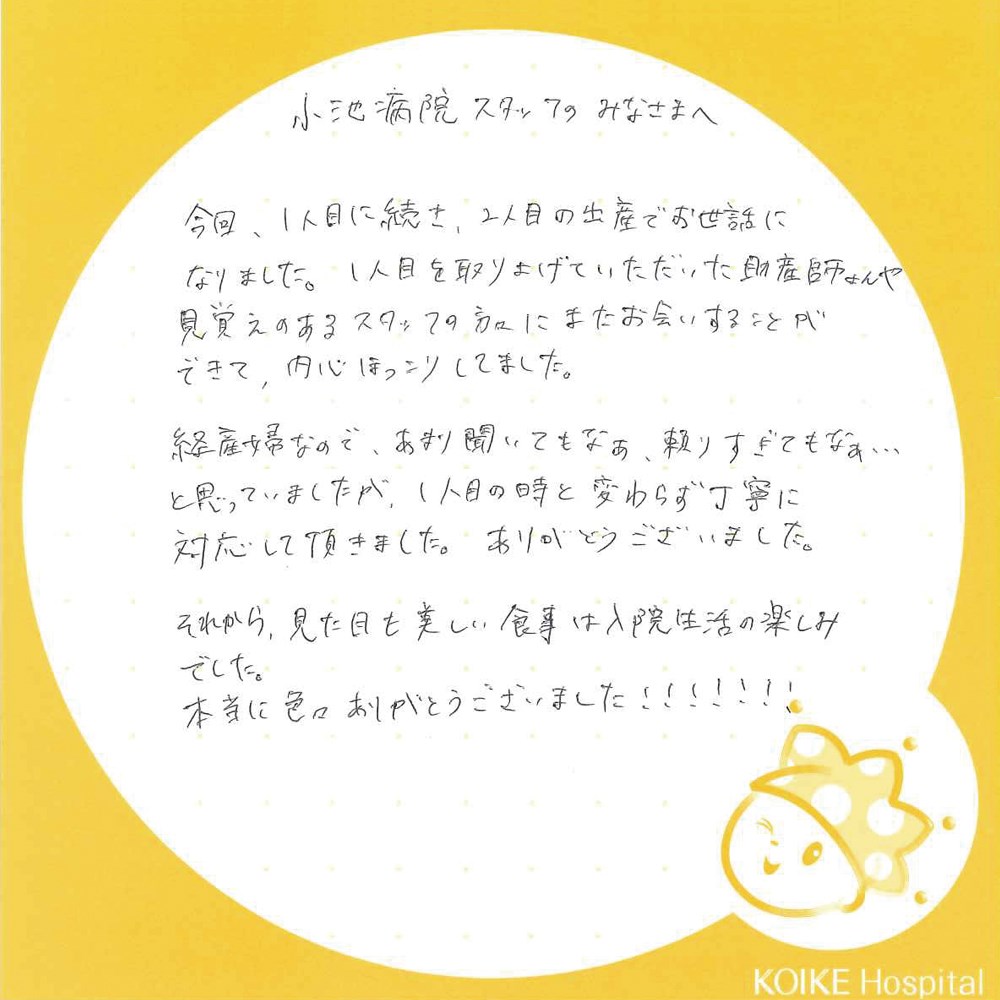 小池病院スタッフの みなさまへ
今回、1人目に続き、2人目の出産でお世話に
なりました。1人目を取り上げていただいた助産師さんや
見覚えのあるスタッフの方々にまたお会いすることが
できて、内心ほっこりしてました。
経産婦なので、あまり聞いてもなぁ、頼りすぎてもなぁ…
と思っていましたが、1人目の時と変わらず丁寧に
対応して頂きました。ありがとうございました。
それから、見た目も美しい食事は入院生活の楽しみ
でした。
本当に色々ありがとうございました!!!!!!!
KOIKE Hospital